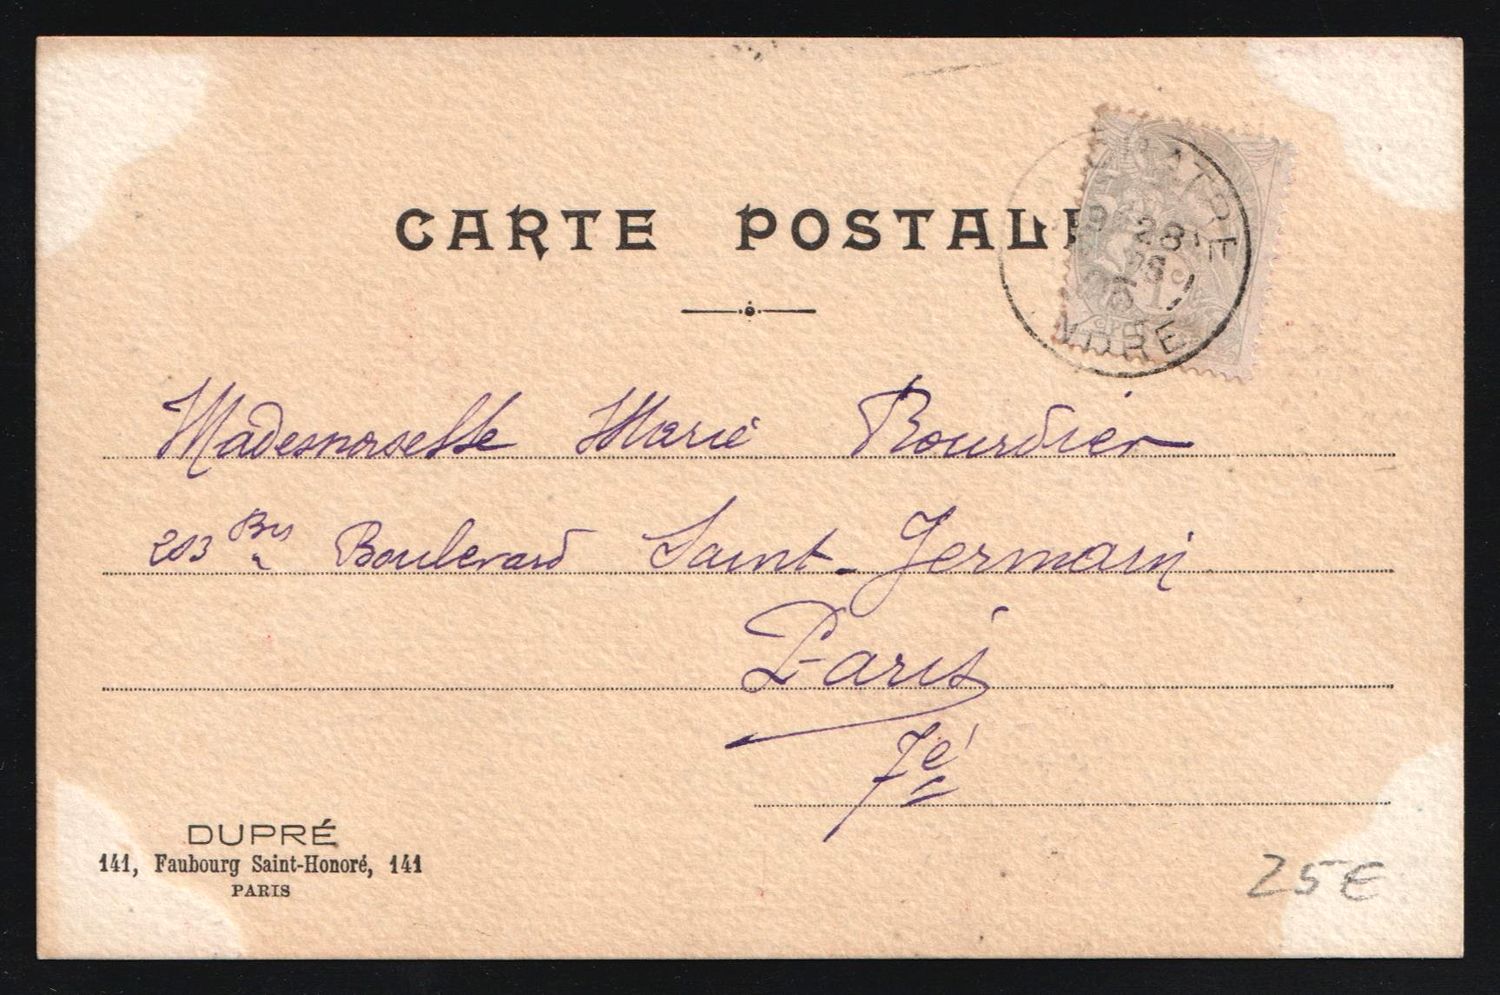 CARTE POSTALE
Mademoiselle Marie Bourdier
203 Bis Boulevard Saint-Germain
Paris
7é
DUPRÉ
141, Faubourg Saint-Honoré, 141
PARIS
25€